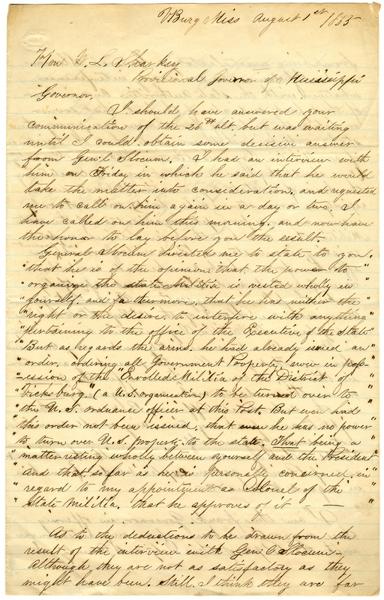 VBurg Miss August 1st 1865
Hon W. L. Sharkey
Provisional Governor of Mississippi
Governor,
I should have answered your
communication of the 26th ult. but was waiting
until I could obtain some decisive answer
from Gen'l Slocum. I had an interview with
him on Friday in which he said that he would
take the matter into consideration, and requested
me to call on him again in a day or two. I
have called on him this morning, and now have
the honor to lay before you the result.
General Slocum directed me to state to you,
"that he is of the opinion that the power to
"organize the State Militia is vested wholly in
"yourself, and furthermore, that he has neither the
"right or the desire, to interfere with anything
"pertaining to the office of the Executive of the State
"But as regards the arms, he had already issued an
"order, ordering all Government Property, now in pos-
"session of the "Enrolled Militia of the District of
"Vicksburg, (a U.S. organization) to be turned over to
"the U.S. ordnance officer at this Post. But even had
"this order not been issued, that he has no power
"to turn over U.S. property to the State, That being a
"matter resting wholly between yourself and the President
"And that so far as he is personally concerned, in
"regard to my appointment as Colonel of the
"State Militia, that he approves of it —
As to the deductions to be drawn from the
result of the interview with Gen'l Slocum -
Although they are not as satisfactory as they
might have been. Still, I think they are far